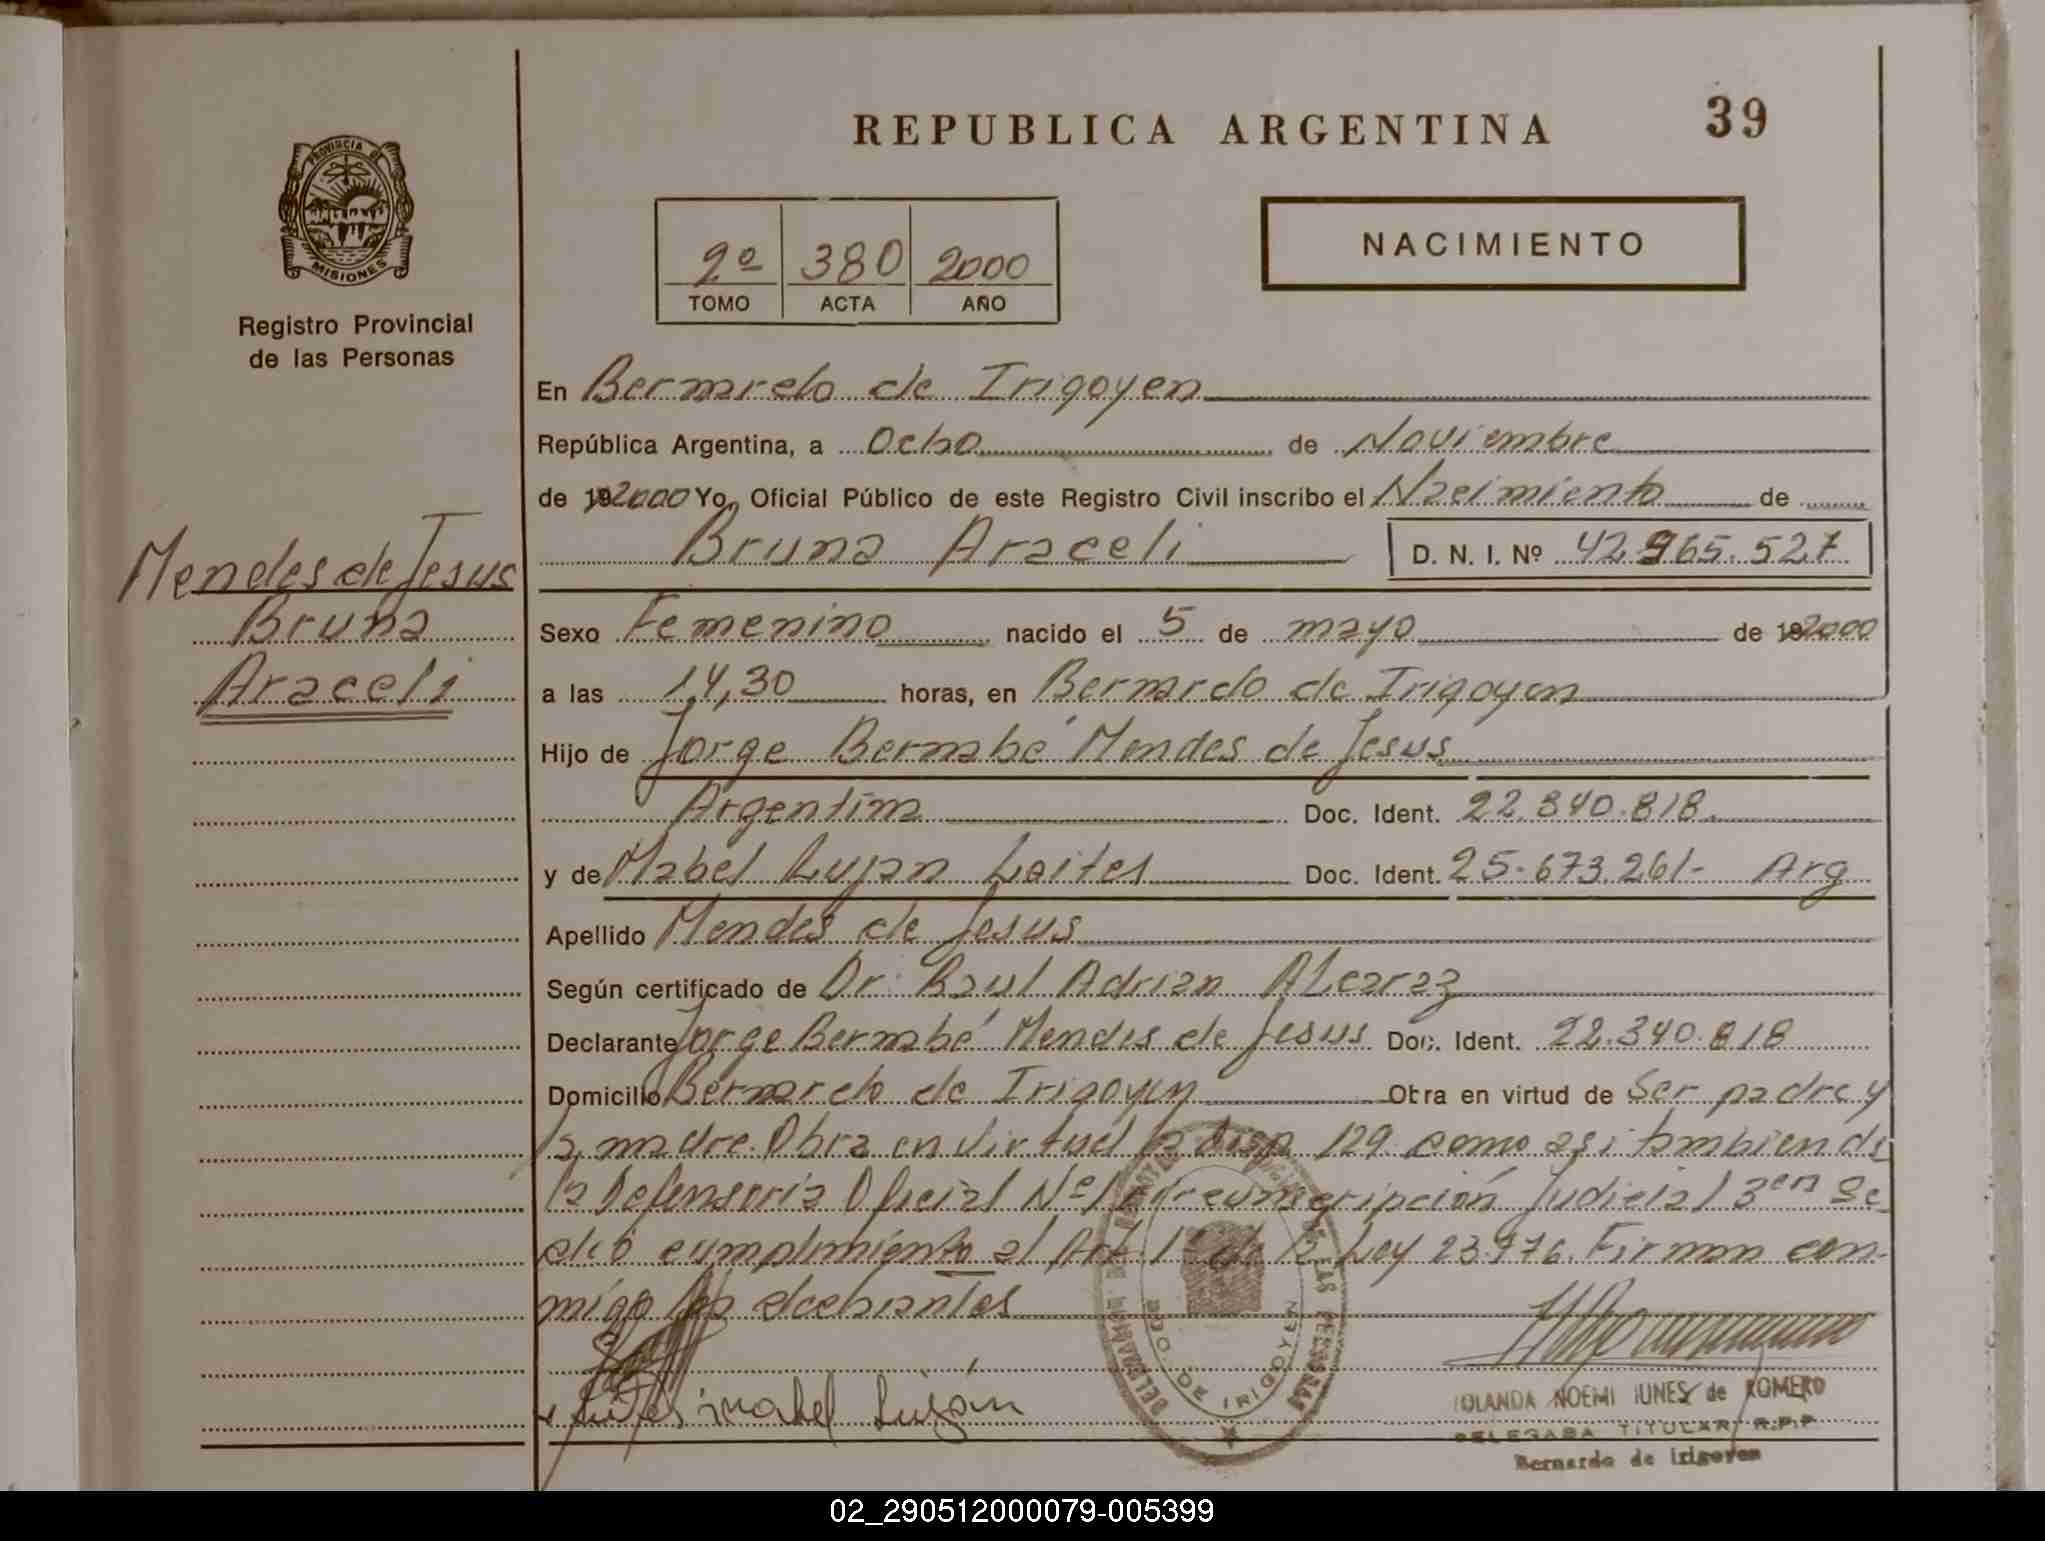 REPUBLICA ARGENTINA
39
PROVINCIA DE
MISIONES
Registro Provincial
de las Personas
2º 380 2000
TOMO ACTA AÑO
NACIMIENTO
En Bernardo de Irigoyen
República Argentina, a Ocho de Noviembre
de 19 2000 Yo, Oficial Público de este Registro Civil inscribo el Nacimiento de
Bruna Araceli D. N. I. Nº 42.965.527
Mendes de Jesus
Bruna
Araceli
Sexo Femenino nacido el 5 de mayo de 19 2000
a las 14,30 horas, en Bernardo de Irigoyen
Hijo de Jorge Bernabé Mendes de Jesus
Argentina Doc. Ident. 22.340.818
y de Mabel Lujan Leites Doc. Ident. 25.673.261- Arg
Apellido Mendes de Jesus
Según certificado de Dr. Raul Adrian ALcaraz
Declarante Jorge Bernabé Mendes de Jesus Doc. Ident. 22.340.818
Domicilio Bernardo de Irigoyen Obra en virtud de Ser padre y
la madre. Obra en virtud la Disp. 129 como asi tambien de
la Defensoria Oficial Nº 1 Circunscripción Judicial 3era Se
dió cumplimiento al Art. 1º de la Ley 23.976. Firman con-
migo los declarantes
Leites mabel Luján
DE LAS PERSONAS
BDO. DE IRIGOYEN
IOLANDA NOEMI IUNES de ROMERO
DELEGADA TITULAR R.P.P
Bernardo de Irigoyen
02_290512000079-005399